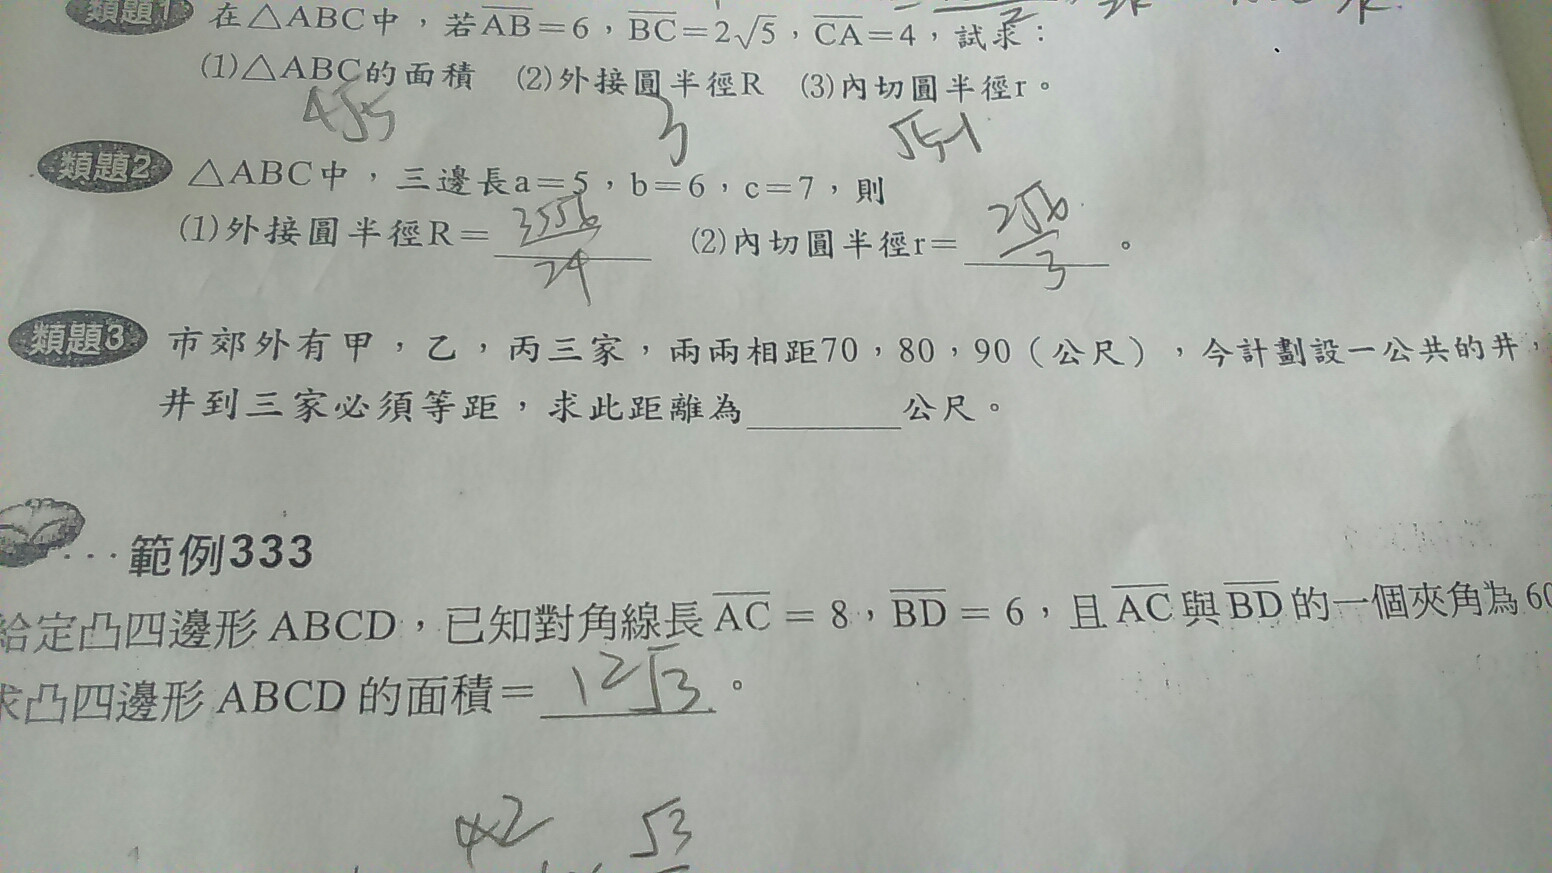 類題1 在△ABC中，若AB＝6，BC＝2√5，CA＝4，試求：
(1)△ABC的面積 (2)外接圓半徑R (3)內切圓半徑r。
4√5 3 √5-1
類題2 △ABC中，三邊長a＝5，b＝6，c＝7，則
(1)外接圓半徑R＝ 35√6/24 (2)內切圓半徑r＝ 2√6/3 。
類題3 市郊外有甲，乙，丙三家，兩兩相距70，80，90（公尺），今計劃設一公共的井，
井到三家必須等距，求此距離為＿＿＿＿公尺。
…範例333
給定凸四邊形 ABCD，已知對角線長 AC = 8，BD = 6，且 AC 與 BD 的一個夾角為 60
求凸四邊形 ABCD 的面積＝ 12√3 。
√3